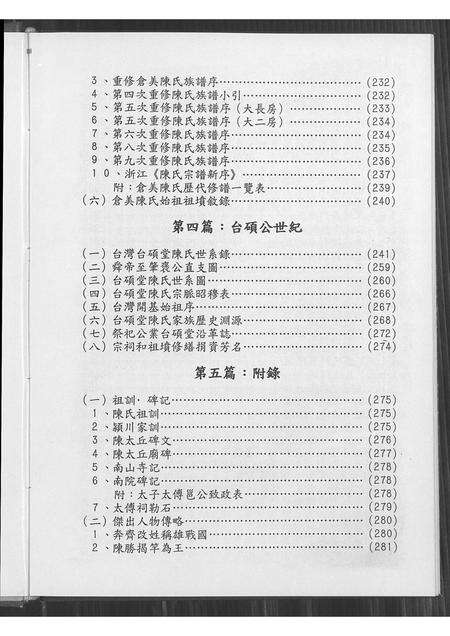 3、重修倉美陳氏族譜序……………………………(232)
4、第四次重修陳氏族譜小引………………………(232)
5、第五次重修陳氏族譜序(大長房)……………(233)
6、第五次重修陳氏族譜序(大二房)……………(234)
7、第六次重修陳氏族譜序…………………………(234)
8、第八次重修陳氏族譜序…………………………(235)
9、第九次重修陳氏族譜序…………………………(236)
10、浙江《陳氏宗譜新序》………………………(237)
附:倉美陳氏歷代修譜一覽表…………………(239)
(六)倉美陳氏始祖祖墳敘錄………………………(240)
第四篇:台碩公世紀
(一)台灣台碩堂陳氏世系錄………………………(241)
(二)舜帝至肇裘公直支圖…………………………(259)
(三)台碩堂陳氏世系圖……………………………(260)
(四)台碩堂陳氏宗脈昭穆表………………………(266)
(五)台灣開基始祖序………………………………(267)
(六)台碩堂陳氏家族歷史淵源……………………(268)
(七)祭祀公業台碩堂沿革誌………………………(272)
(八)宗祠和祖墳修繕捐資芳名……………………(274)
第五篇:附錄
(一)祖訓·碑記……………………………………(275)
1、陳氏祖訓…………………………………………(275)
2、潁川家訓…………………………………………(275)
3、陳太丘碑文………………………………………(276)
4、陳太丘廟碑………………………………………(277)
5、南山寺記…………………………………………(278)
6、南院碑記…………………………………………(278)
附:太子太傅邕公致政表………………………(278)
7、太傅祠勒石………………………………………(279)
(二)傑出人物傳略…………………………………(280)
1、奔齊改姓稱雄戰國………………………………(280)
2、陳勝揭竿為王……………………………………(281)